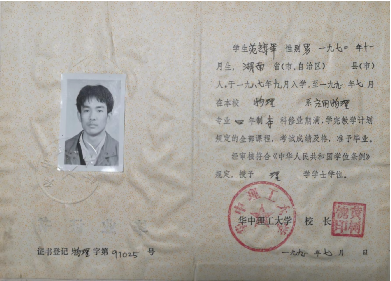 学生 性别 男 一九七〇年十
月生，湖南 省(市、自治区) 县(市)
人，于一九八七年九月入学，至一九九 年七月
在本校 物理 系 应用物理
专业 四 年制 本 科修业期满，学完教学计划
规定的全部课程，考试成绩及格，准予毕业。
经审核符合《中华人民共和国学位条例》
规定，授予 理 学学士学位。
华中理工大学 校长
华中理工大学
证书登记 物理 字第 97025 号
一九九 年七月 日